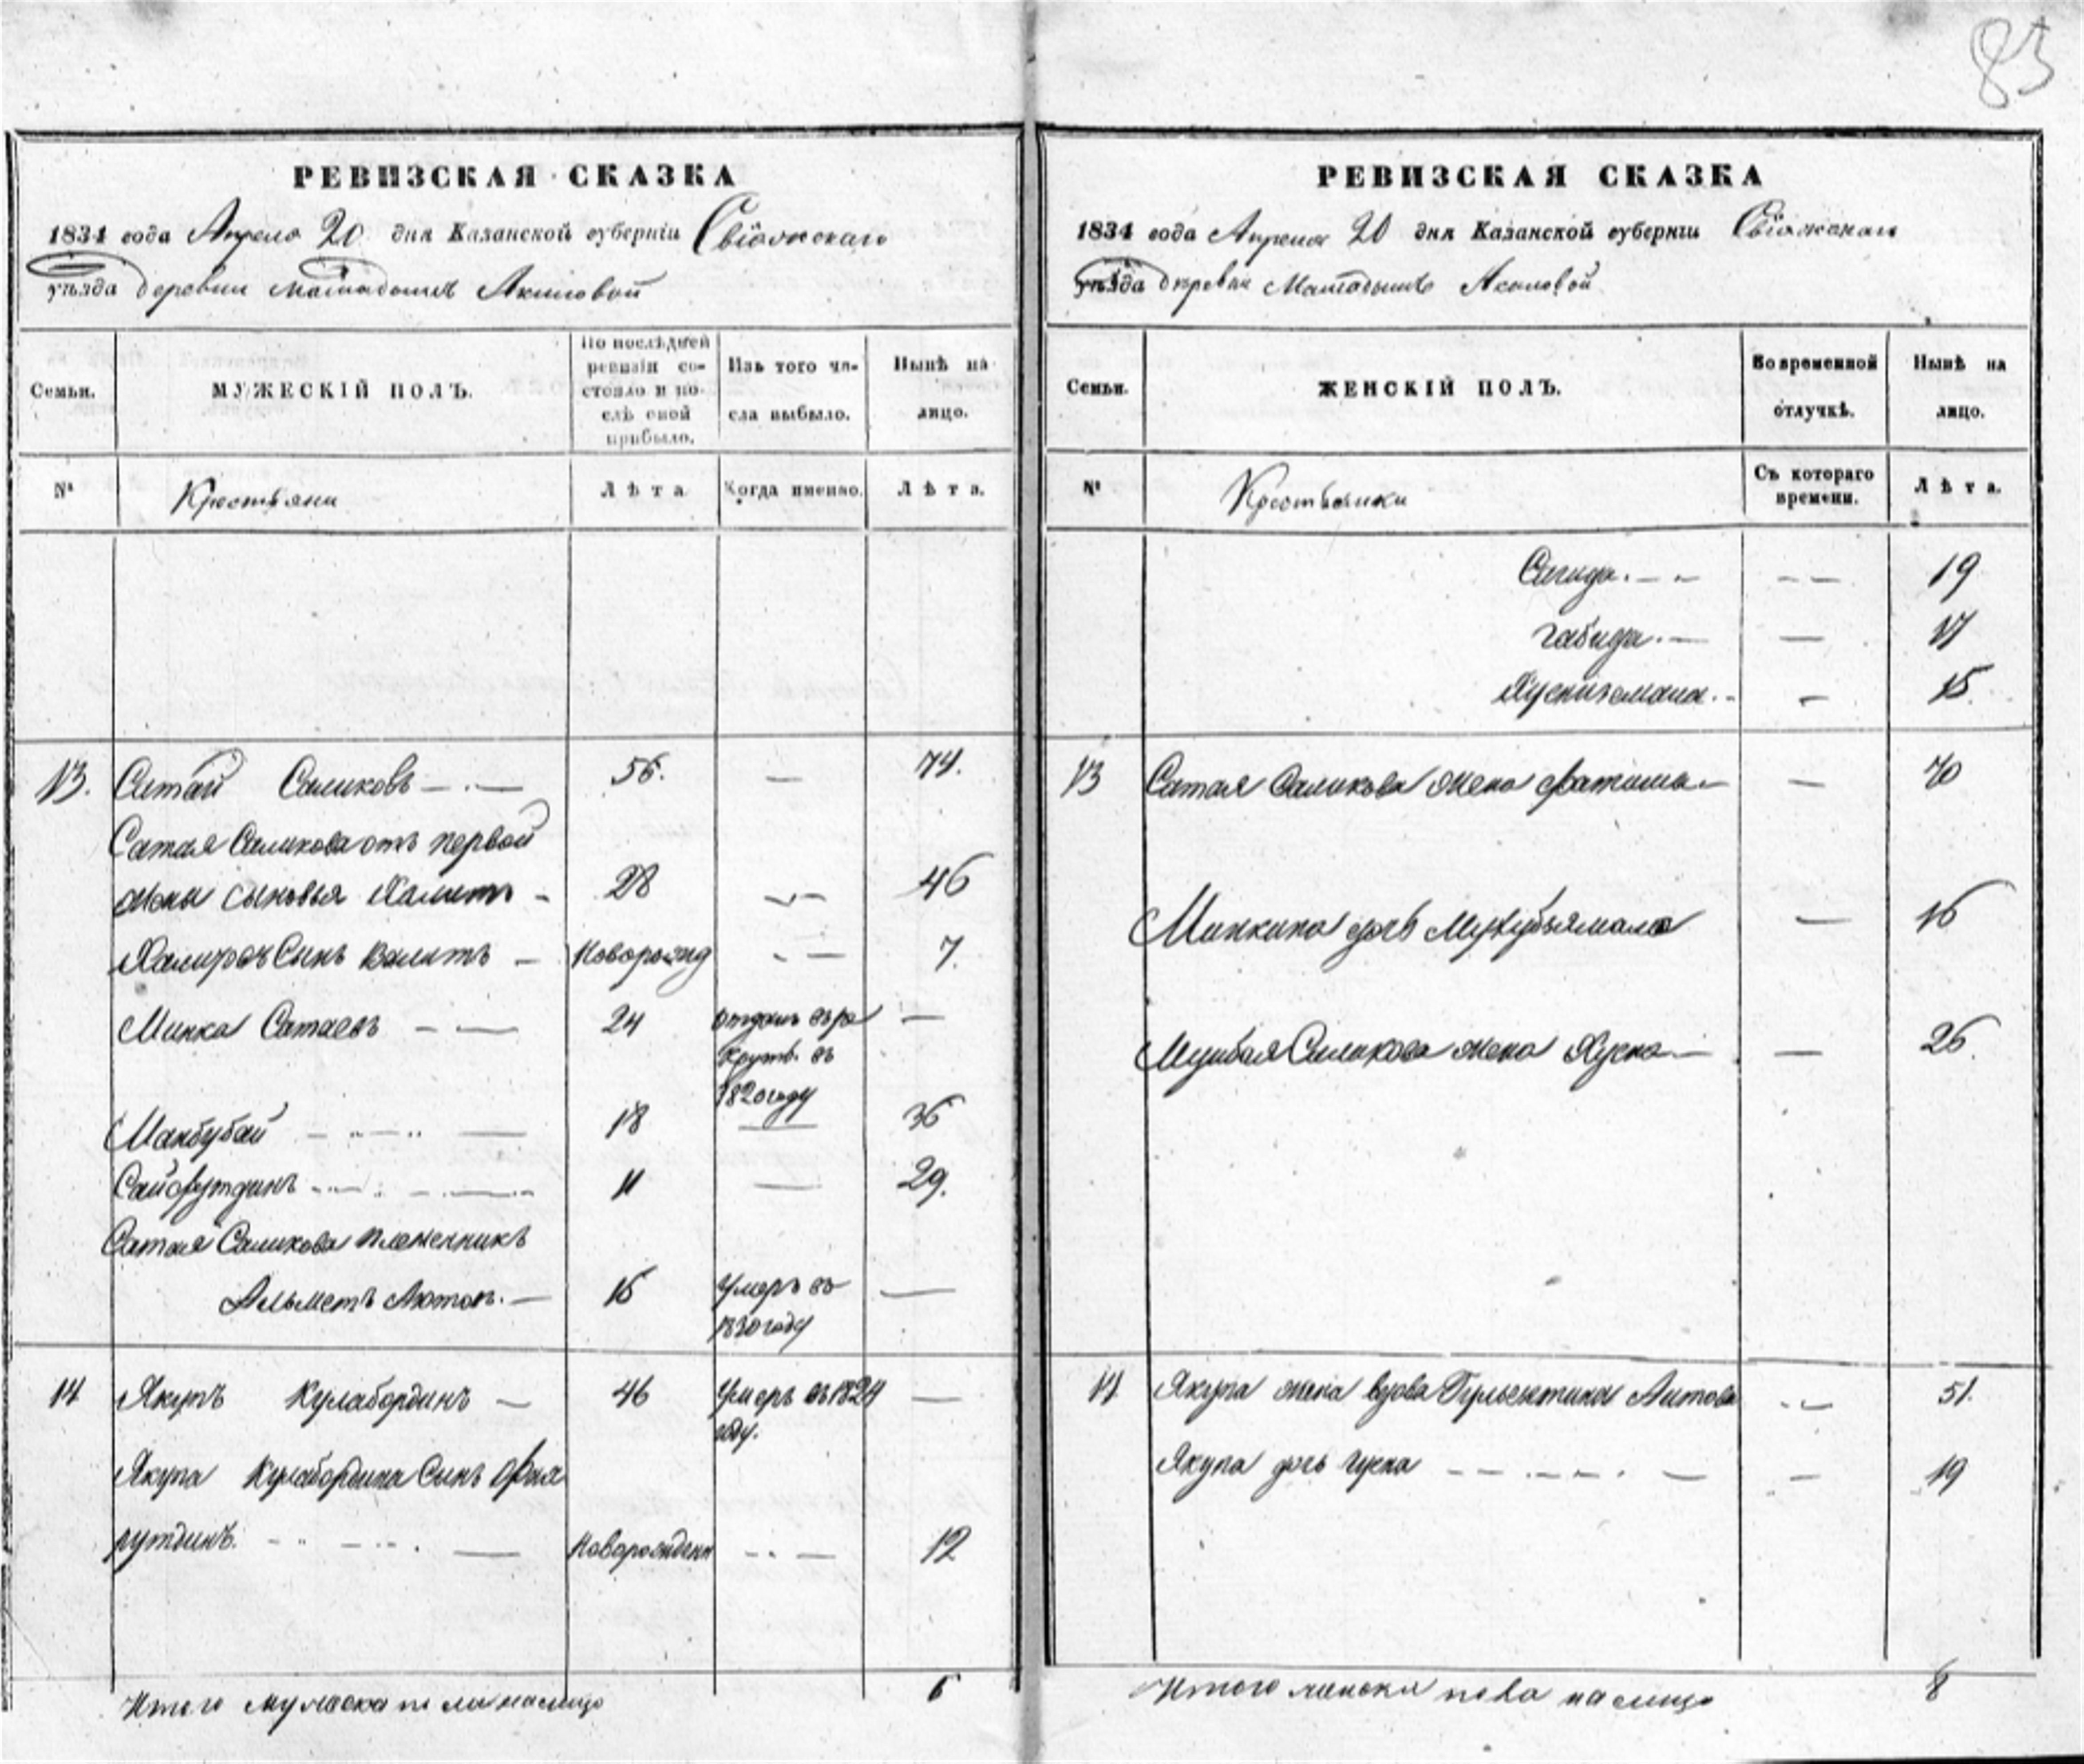 83
РЕВИЗСКАЯ СКАЗКА
1834 года Апреля 20 дня Казанской губерніи Свіяжскаго
уѣзда деревни
Семьи.
МУЖЕСКІЙ ПОЛЪ.
По послѣдней ревизіи состояло и послѣ оной прибыло.
Изъ того числа выбыло.
Нынѣ на лицо.
№
Крестьяни
Лѣта
Когда именно.
Лѣта.
13. Сатай Саликовъ 56. — 74.
Сатая Саликова отъ первой
жены сыновья Халитъ 28 — 46
Сынъ Валитъ — Новорожд — 7.
Минка Сатаевъ — 24 отданъ въ ре —
крутъ. въ
1820 году
18 — 36
Сайфутдинъ 11 — 29.
Сатая Саликова племенникъ
Альметъ 15 Умеръ въ —
1830 году
14 Якупъ Кулабердинъ — 46 Умеръ въ 1824 —
году.
Якупа Кулабердина Сынъ Фах
рутдинъ. Новорожденн — 12
Итого мужеска пола налицо 6
РЕВИЗСКАЯ СКАЗКА
1834 года Апреля 20 дня Казанской губерніи Свіяжскаго
уѣзда деревни
Семьи.
ЖЕНСКІЙ ПОЛЪ.
Во временной отлучкѣ.
Нынѣ на лицо.
№
Крестьянки
Съ котораго времени.
Лѣта.
Сагида. — 19
Габида. — 17
— 15.
13 Сатая Саликова жена Фатима — 70
Минкина дочь — 16
Саликова жена Хусна — 26
14 Якупа жена вдова Аитова — 51.
Якупа дочь — 19
Итого женска пола налицо 8